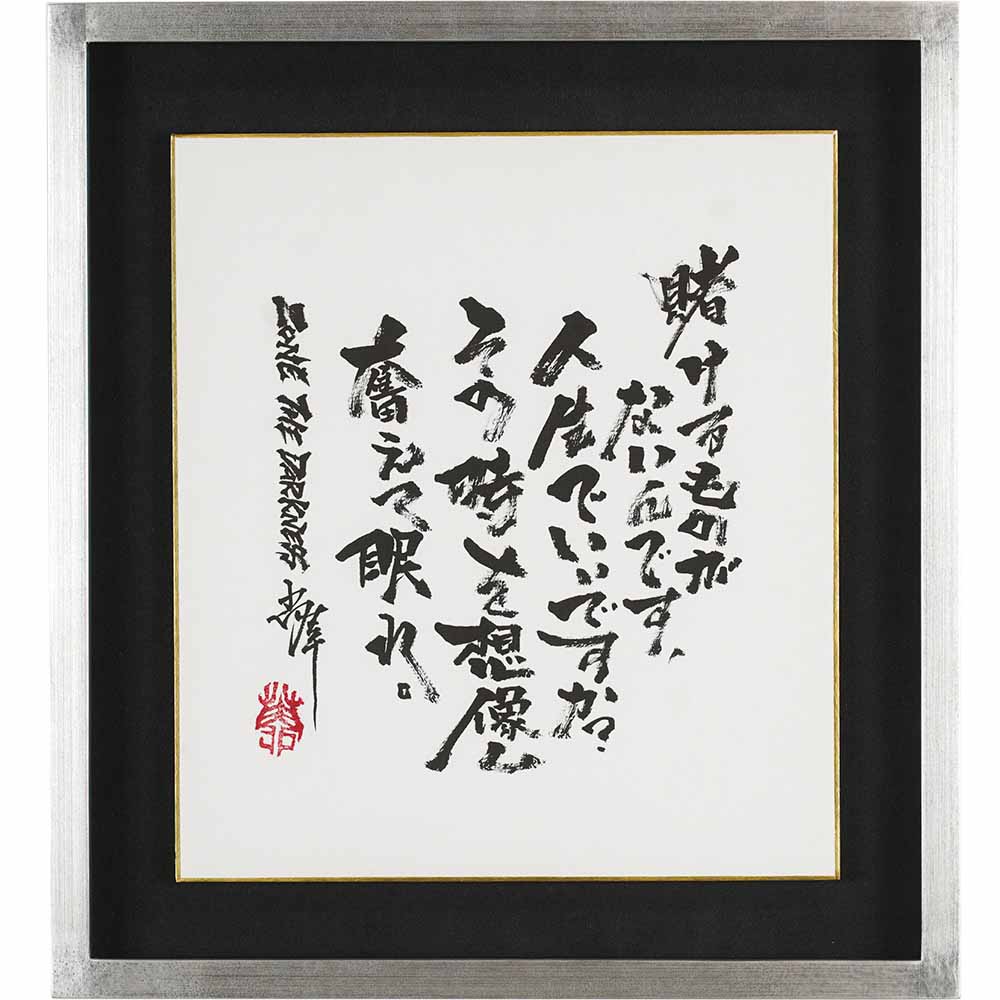 賭けるものが
ないんです、
人生でいいですか?
その時を想像し
奮えて眠れ。
ZONE THE DARKNESS